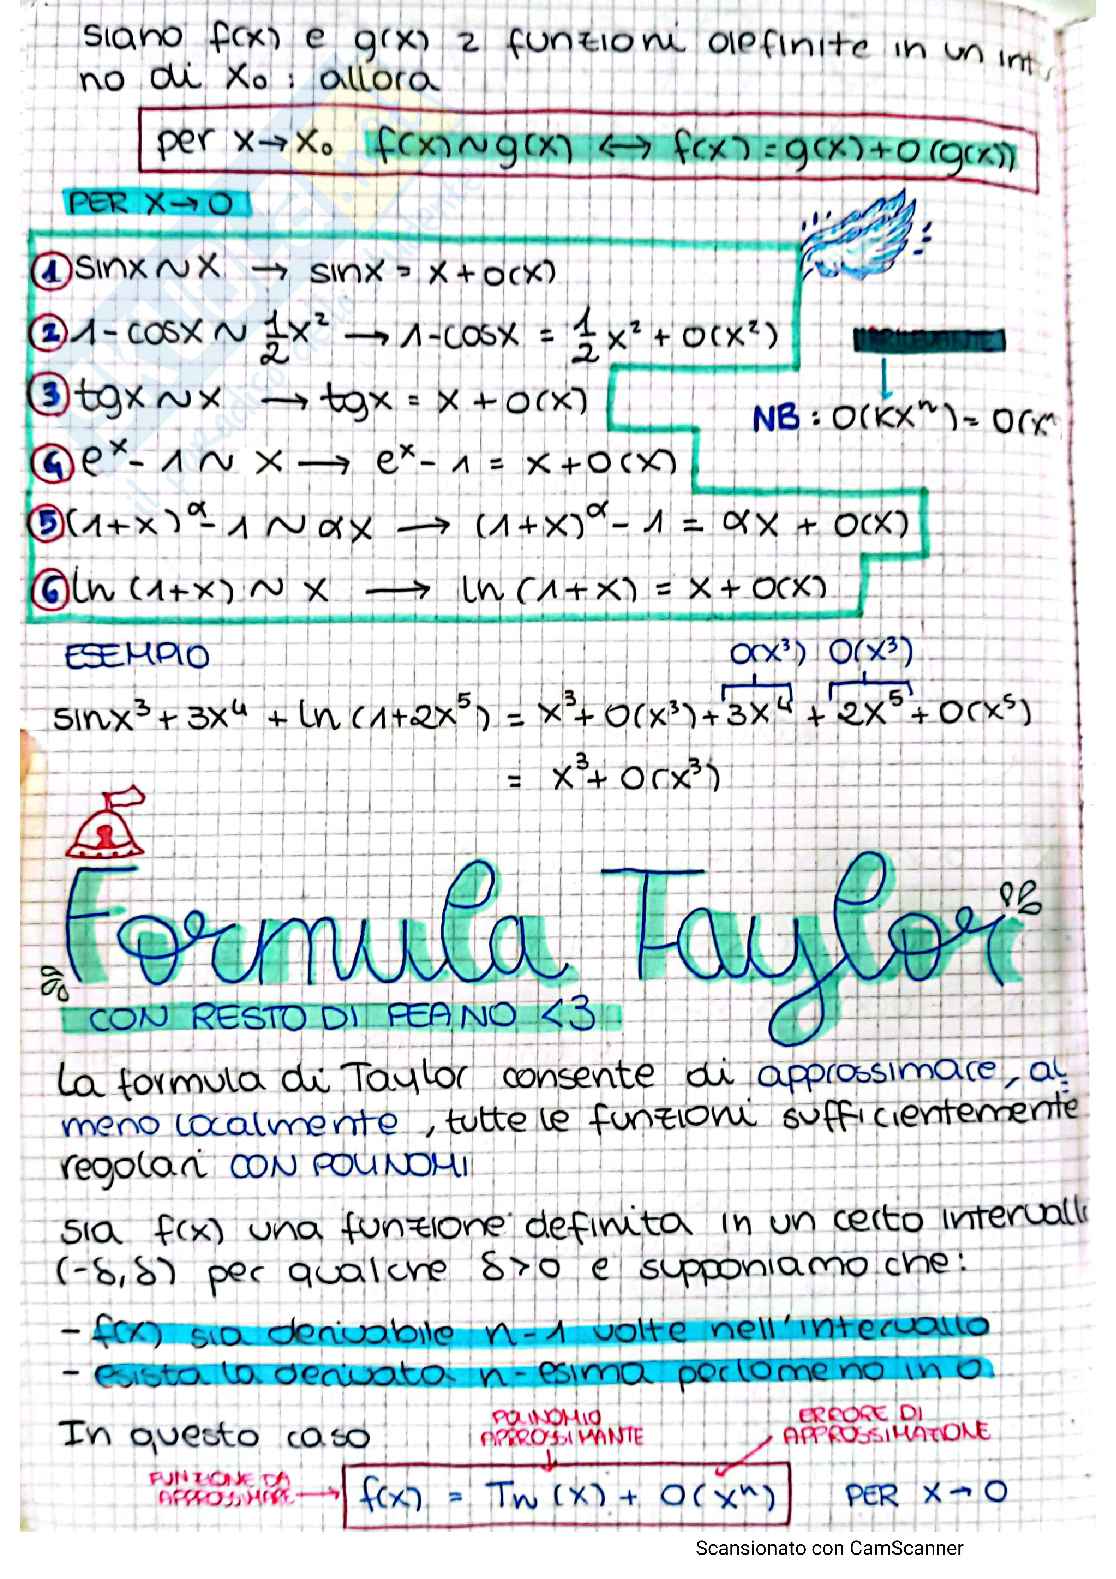 siano f(x) e g(x) 2 funzioni definite in un int
no di x₀ : allora
per x→x₀ f(x)~g(x) ⟷ f(x)=g(x)+o(g(x))
PER X→0
① sinx~x → sinx = x+o(x)
② 1-cosx ~ 1/2 x² → 1-cosx = 1/2 x² + o(x²)
③ tgx~x → tgx = x + o(x)
NB : o(Kxⁿ)= o(xⁿ
④ eˣ-1 ~ x → eˣ-1 = x+o(x)
⑤ (1+x)^α-1 ~ αx → (1+x)^α-1 = αx + o(x)
⑥ ln(1+x) ~ x → ln(1+x) = x+o(x)
ESEMPIO
o(x³) o(x³)
sinx³+3x⁴ + ln(1+2x⁵) = x³+o(x³)+3x⁴+2x⁵+o(x⁵)
= x³+o(x³)
Formula Taylor
CON RESTO DI PEANO <3
La formula di Taylor consente di approssimare, al
meno localmente, tutte le funzioni sufficientemente
regolari CON POLINOMI
Sia f(x) una funzione definita in un certo intervall
(-δ,δ) per qualche δ>0 e supponiamo che:
- f(x) sia derivabile n-1 volte nell'intervallo
- esista la derivata n-esima perlomeno in 0.
POLINOMIO ERRORE DI
In questo caso APPROSSIMANTE APPROSSIMAZIONE
FUNZIONE DA
APPROSSIMARE → f(x) = Tn (x) + o(xⁿ) PER X→0
Scansionato con CamScanner